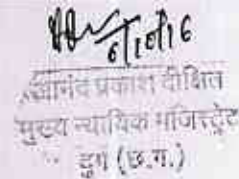 6/10/16
आनंद प्रकाश दीक्षित
मुख्य न्यायिक मजिस्ट्रेट
दुर्ग (छ.ग.)